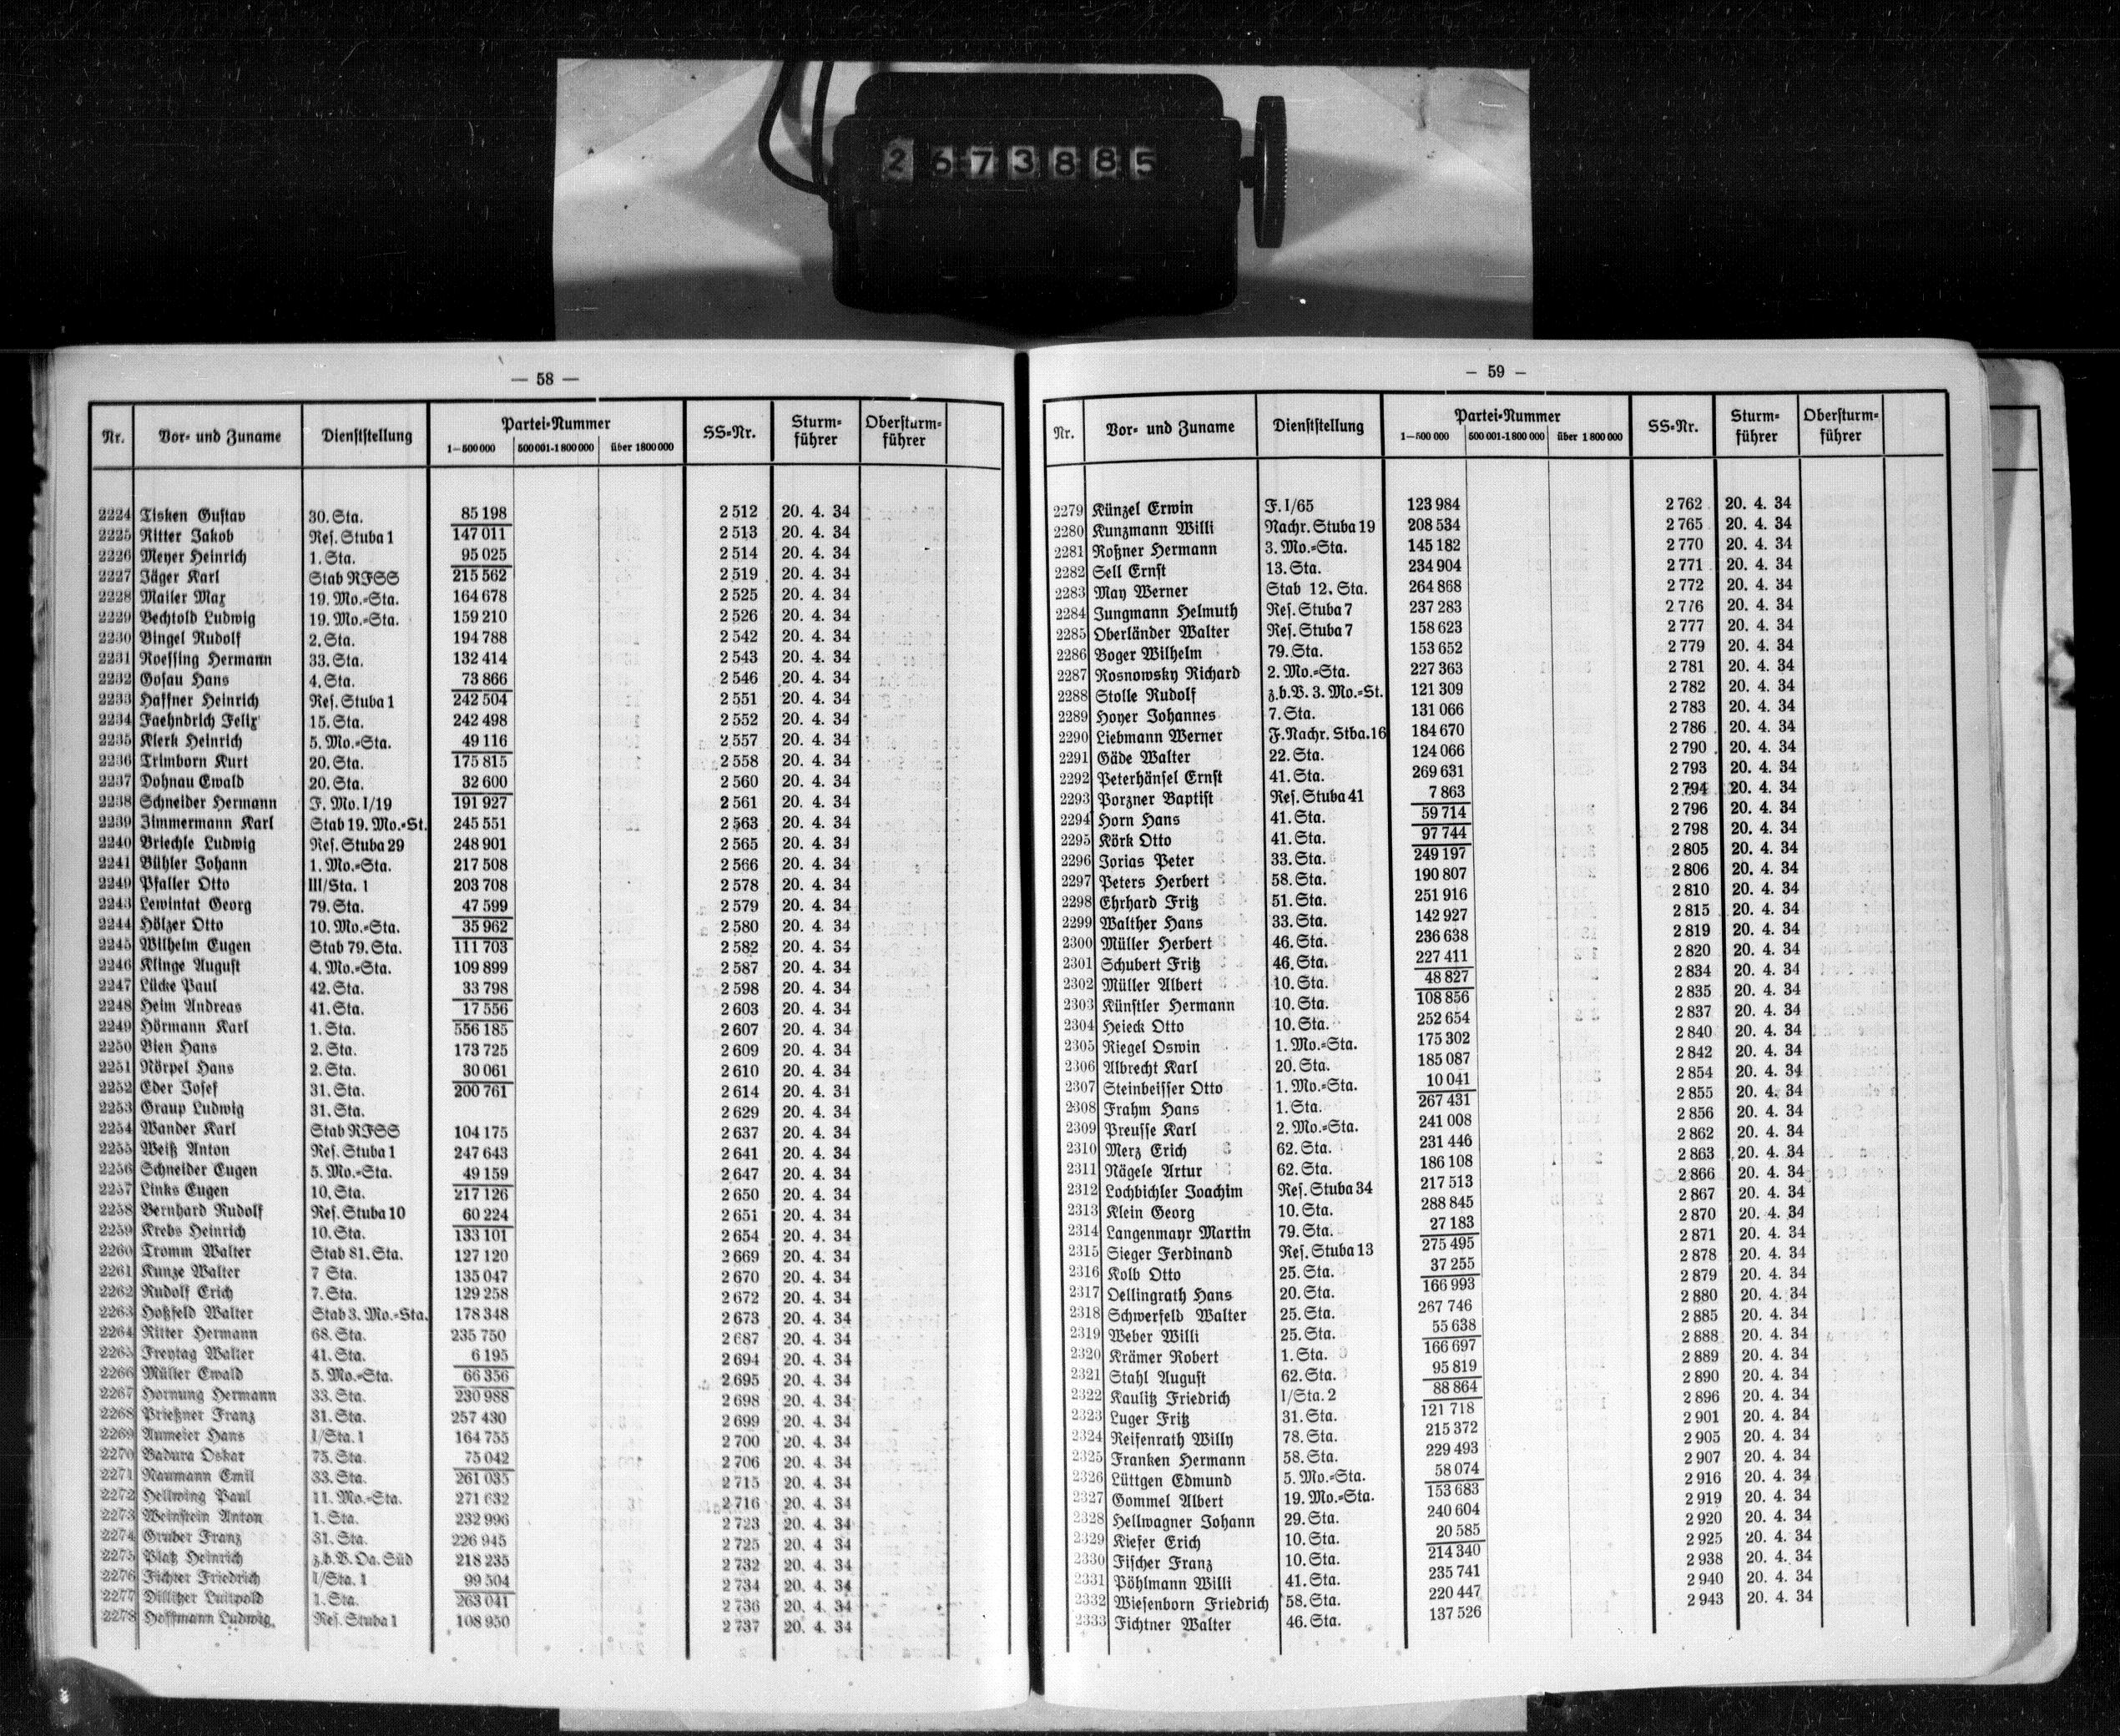 2673885
— 58 —
Nr. Vor- und Zuname Dienststellung Partei-Nummer 1—500 000 500 001-1 800 000 über 1 800 000 SS-Nr. Sturmführer Obersturmführer
2224 Tisken Gustav 30. Sta. 85 198 2 512 20. 4. 34
2225 Ritter Jakob Res. Stuba 1 147 011 2 513 20. 4. 34
2226 Meyer Heinrich 1. Sta. 95 025 2 514 20. 4. 34
2227 Jäger Karl Stab RFSS 215 562 2 519 20. 4. 34
2228 Mailer Max 19. Mo.-Sta. 164 678 2 525 20. 4. 34
2229 Bechtold Ludwig 19. Mo.-Sta. 159 210 2 526 20. 4. 34
2230 Bingel Rudolf 2. Sta. 194 788 2 542 20. 4. 34
2231 Roessing Hermann 33. Sta. 132 414 2 543 20. 4. 34
2232 Gosau Hans 4. Sta. 73 866 2 546 20. 4. 34
2233 Haffner Heinrich Res. Stuba 1 242 504 2 551 20. 4. 34
2234 Faehndrich Felix 15. Sta. 242 498 2 552 20. 4. 34
2235 Klerk Heinrich 5. Mo.-Sta. 49 116 2 557 20. 4. 34
2236 Trimborn Kurt 20. Sta. 175 815 2 558 20. 4. 34
2237 Dohnau Ewald 20. Sta. 32 600 2 560 20. 4. 34
2238 Schneider Hermann F. Mo. I/19 191 927 2 561 20. 4. 34
2239 Zimmermann Karl Stab 19. Mo.-St. 245 551 2 563 20. 4. 34
2240 Briechle Ludwig Res. Stuba 29 248 901 2 565 20. 4. 34
2241 Bühler Johann 1. Mo.-Sta. 217 508 2 566 20. 4. 34
2249 Pfaller Otto III/Sta. 1 203 708 2 578 20. 4. 34
2243 Lewintat Georg 79. Sta. 47 599 2 579 20. 4. 34
2244 Hölzer Otto 10. Mo.-Sta. 35 962 2 580 20. 4. 34
2245 Wilhelm Eugen Stab 79. Sta. 111 703 2 582 20. 4. 34
2246 Klinge August 4. Mo.-Sta. 109 899 2 587 20. 4. 34
2247 Lücke Paul 42. Sta. 33 798 2 598 20. 4. 34
2248 Heim Andreas 41. Sta. 17 556 2 603 20. 4. 34
2249 Hörmann Karl 1. Sta. 556 185 2 607 20. 4. 34
2250 Bien Hans 2. Sta. 173 725 2 609 20. 4. 34
2251 Nörpel Hans 2. Sta. 30 061 2 610 20. 4. 34
2252 Eder Josef 31. Sta. 200 761 2 614 20. 4. 34
2253 Graup Ludwig 31. Sta. 2 629 20. 4. 34
2254 Wander Karl Stab RFSS 104 175 2 637 20. 4. 34
2255 Weiß Anton Res. Stuba 1 247 643 2 641 20. 4. 34
2256 Schneider Eugen 5. Mo.-Sta. 49 159 2 647 20. 4. 34
2257 Links Eugen 10. Sta. 217 126 2 650 20. 4. 34
2258 Bernhard Rudolf Res. Stuba 10 60 224 2 651 20. 4. 34
2259 Krebs Heinrich 10. Sta. 133 101 2 654 20. 4. 34
2260 Tromm Walter Stab 81. Sta. 127 120 2 669 20. 4. 34
2261 Kunze Walter 7 Sta. 135 047 2 670 20. 4. 34
2262 Rudolf Erich 7. Sta. 129 258 2 672 20. 4. 34
2263 Hoßfeld Walter Stab 3. Mo.-Sta. 178 348 2 673 20. 4. 34
2264 Ritter Hermann 68. Sta. 235 750 2 687 20. 4. 34
2265 Freytag Walter 41. Sta. 6 195 2 694 20. 4. 34
2266 Müller Ewald 5. Mo.-Sta. 66 356 2 695 20. 4. 34
2267 Hornung Hermann 33. Sta. 230 988 2 698 20. 4. 34
2268 Prießner Franz 31. Sta. 257 430 2 699 20. 4. 34
2269 Aumeier Hans I/Sta. 1 164 755 2 700 20. 4. 34
2270 Badura Oskar 75. Sta. 75 042 2 706 20. 4. 34
2271 Naumann Emil 33. Sta. 261 035 2 715 20. 4. 34
2272 Hellwing Paul 11. Mo.-Sta. 271 632 2 716 20. 4. 34
2273 Weinstein Anton 1. Sta. 232 996 2 723 20. 4. 34
2274 Gruber Franz 31. Sta. 226 945 2 725 20. 4 34
2275 Platz Heinrich z.b.V. Oa. Süd 218 235 2 732 20. 4. 34
2276 Fichter Friedrich I/Sta. 1 99 504 2 734 20. 4. 34
2277 Dillitzer Luitpold 1. Sta. 263 041 2 736 20. 4. 34
2278 Hoffmann Ludwig Res. Stuba 1 108 950 2 737 20. 4. 34
— 59 —
Nr. Vor- und Zuname Dienststellung Partei-Nummer 1—500 000 500 001-1 800 000 über 1 800 000 SS-Nr. Sturmführer Obersturmführer
2279 Künzel Erwin F. I/65 123 984 2 762 20. 4. 34
2280 Kunzmann Willi Nachr. Stuba 19 208 534 2 765 20. 4. 34
2281 Roßner Hermann 3. Mo.-Sta. 145 182 2 770 20. 4. 34
2282 Sell Ernst 13. Sta. 234 904 2 771 20. 4. 34
2283 May Werner Stab 12. Sta. 264 868 2 772 20. 4. 34
2284 Jungmann Helmuth Res. Stuba 7 237 283 2 776 20. 4. 34
2285 Oberländer Walter Res. Stuba 7 158 623 2 777 20. 4. 34
2286 Boger Wilhelm 79. Sta. 153 652 2 779 20. 4. 34
2287 Rosnowsky Richard 2. Mo.-Sta. 227 363 2 781 20. 4. 34
2288 Stolle Rudolf z.b.V. 3. Mo.-St. 121 309 2 782 20. 4. 34
2289 Hoyer Johannes 7. Sta. 131 066 2 783 20. 4. 34
2290 Liebmann Werner F.Nachr. Stba. 16 184 670 2 786 20. 4. 34
2291 Gäde Walter 22. Sta. 124 066 2 790 20. 4. 34
2292 Peterhänsel Ernst 41. Sta. 269 631 2 793 20. 4. 34
2293 Porzner Baptist Res. Stuba 41 7 863 2 794 20. 4. 34
2294 Horn Hans 41. Sta. 59 714 2 796 20. 4. 34
2295 Körk Otto 41. Sta. 97 744 2 798 20. 4. 34
2296 Jorias Peter 33. Sta. 249 197 2 805 20. 4. 34
2297 Peters Herbert 58. Sta. 190 807 2 806 20. 4. 34
2298 Ehrhard Fritz 51. Sta. 251 916 2 810 20. 4. 34
2299 Walther Hans 33. Sta. 142 927 2 815 20. 4. 34
2300 Müller Herbert 46. Sta. 236 638 2 819 20. 4. 34
2301 Schubert Fritz 46. Sta. 227 411 2 820 20. 4. 34
2302 Müller Albert 10. Sta. 48 827 2 834 20. 4. 34
2303 Künstler Hermann 10. Sta. 108 856 2 835 20. 4. 34
2304 Heieck Otto 10. Sta. 252 654 2 837 20. 4. 34
2305 Riegel Oswin 1. Mo.-Sta. 175 302 2 840 20. 4. 34
2306 Albrecht Karl 20. Sta. 185 087 2 842 20. 4. 34
2307 Steinbeisser Otto 1. Mo.-Sta. 10 041 2 854 20. 4. 34
2308 Frahm Hans 1. Sta. 267 431 2 855 20. 4. 34
2309 Preusse Karl 2. Mo.-Sta. 241 008 2 856 20. 4. 34
2310 Merz Erich 62. Sta. 231 446 2 862 20. 4. 34
2311 Nägele Artur 62. Sta. 186 108 2 863 20. 4. 34
2312 Lochbichler Joachim Res. Stuba 34 217 513 2 866 20. 4. 34
2313 Klein Georg 10. Sta. 288 845 2 867 20. 4. 34
2314 Langenmayr Martin 79. Sta. 27 183 2 870 20. 4. 34
2315 Sieger Ferdinand Res. Stuba 13 275 495 2 871 20. 4. 34
2316 Kolb Otto 25. Sta. 37 255 2 878 20. 4. 34
2317 Oellingrath Hans 20. Sta. 166 993 2 879 20. 4. 34
2318 Schwerfeld Walter 25. Sta. 267 746 2 880 20. 4. 34
2319 Weber Willi 25. Sta. 55 638 2 885 20. 4. 34
2320 Krämer Robert 1. Sta. 166 697 2 888 20. 4. 34
2321 Stahl August 62. Sta. 95 819 2 889 20. 4. 34
2322 Kaulitz Friedrich I/Sta. 2 88 864 2 890 20. 4. 34
2323 Luger Fritz 31. Sta. 121 718 2 896 20. 4. 34
2324 Reifenrath Willy 78. Sta. 215 372 2 901 20. 4. 34
2325 Franken Hermann 58. Sta. 229 493 2 905 20. 4. 34
2326 Lüttgen Edmund 5. Mo.-Sta. 58 074 2 907 20. 4. 34
2327 Gommel Albert 19. Mo.-Sta. 153 683 2 916 20. 4. 34
2328 Hellwagner Johann 29. Sta. 240 604 2 919 20. 4. 34
2329 Kiefer Erich 10. Sta. 20 585 2 920 20. 4. 34
2330 Fischer Franz 10. Sta. 214 340 2 925 20. 4. 34
2331 Pöhlmann Willi 41. Sta. 235 741 2 938 20. 4. 34
2332 Wiesenborn Friedrich 58. Sta. 220 447 2 940 20. 4. 34
2333 Fichtner Walter 46. Sta. 137 526 2 943 20. 4. 34